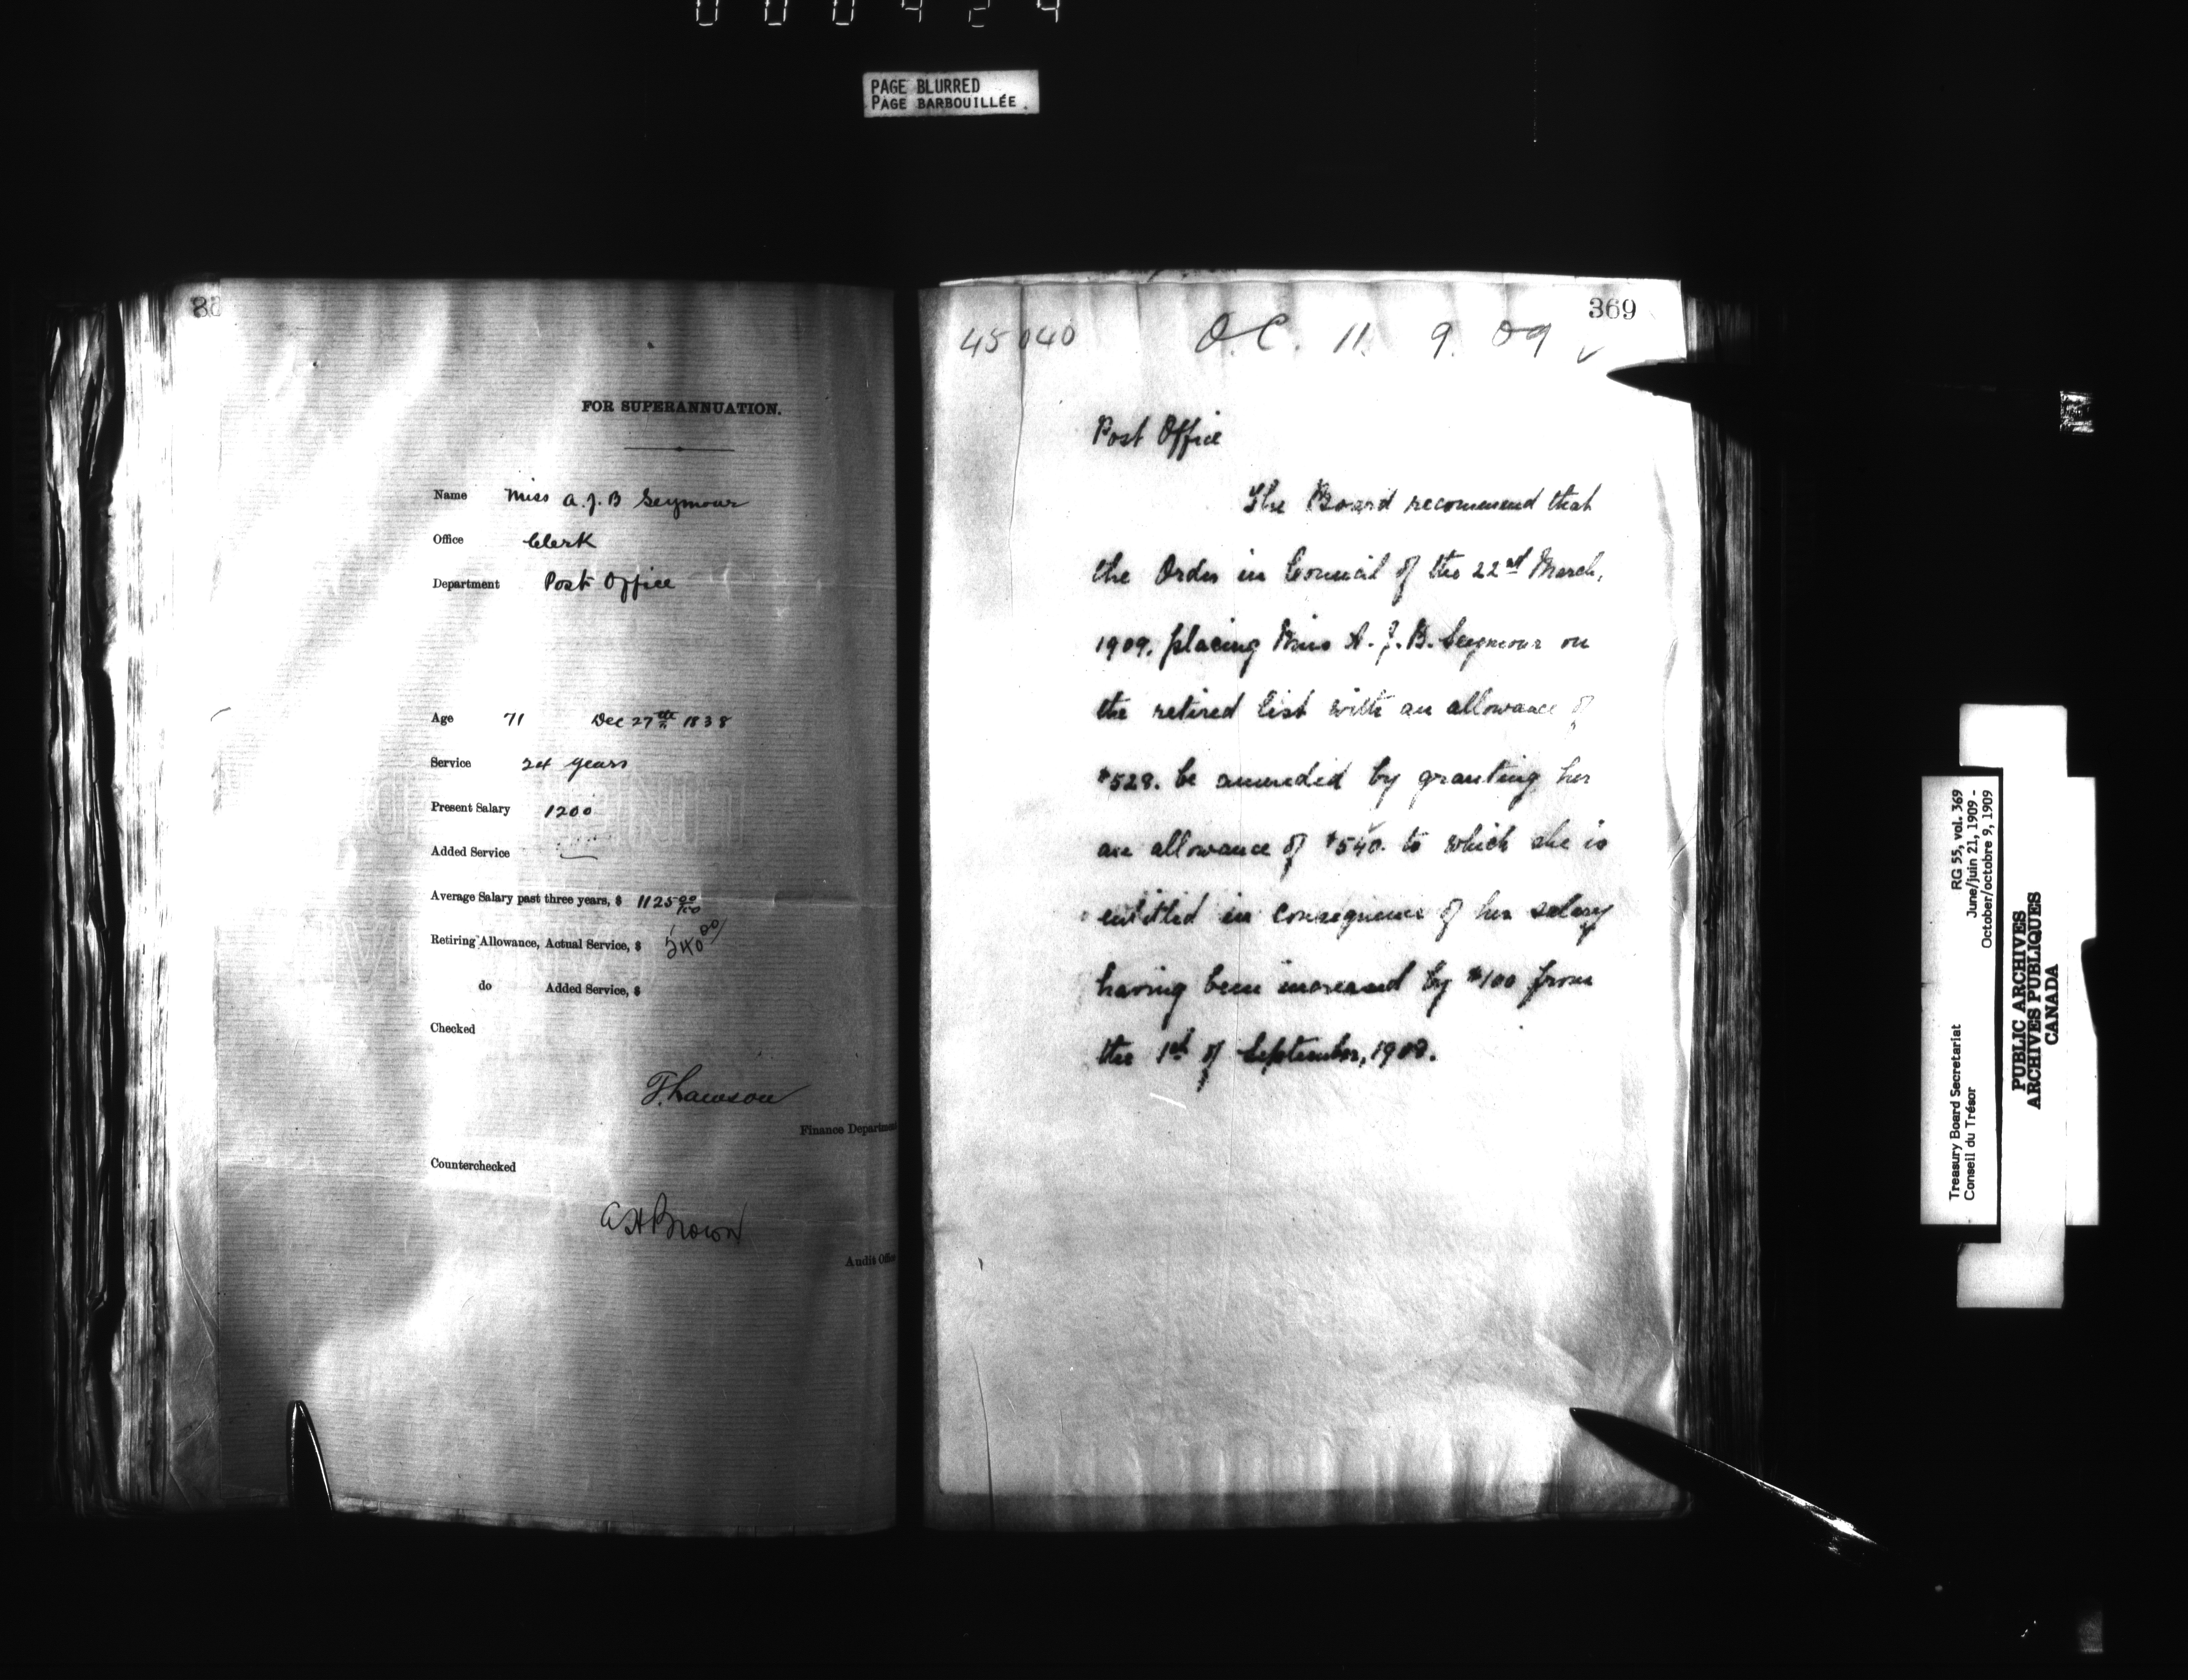 000424
PAGE BLURRED
PAGE BARBOUILLÉE.
FOR SUPERANNUATION.
Name Miss A. J. B Seymour
Office Clerk
Department Post Office
Age 71 Dec 27th 1838
Service 24 years
Present Salary 1200
Added Service
Average Salary past three years, $ 1125 00/100
Retiring Allowance, Actual Service, $ 540 00/
do Added Service, $
Checked
T. Lawson
Finance Department
Counterchecked
A H Brown
Audit Office
369
45040 O.C. 11. 9. 09 ✓
Post Office
The Board recommend that
the Order in Council of the 22nd March,
1909, placing Miss A. J. B. Seymour on
the retired list with an allowance of
$528. be amended by granting her
an allowance of $540. to which she is
entitled in consequence of her salary
having been increased by $100 from
the 1st of September, 1908.
RG 55, vol. 369
June/juin 21, 1909 -
October/octobre 9, 1909
Treasury Board Secretariat
Conseil du Trésor
PUBLIC ARCHIVES
ARCHIVES PUBLIQUES
CANADA